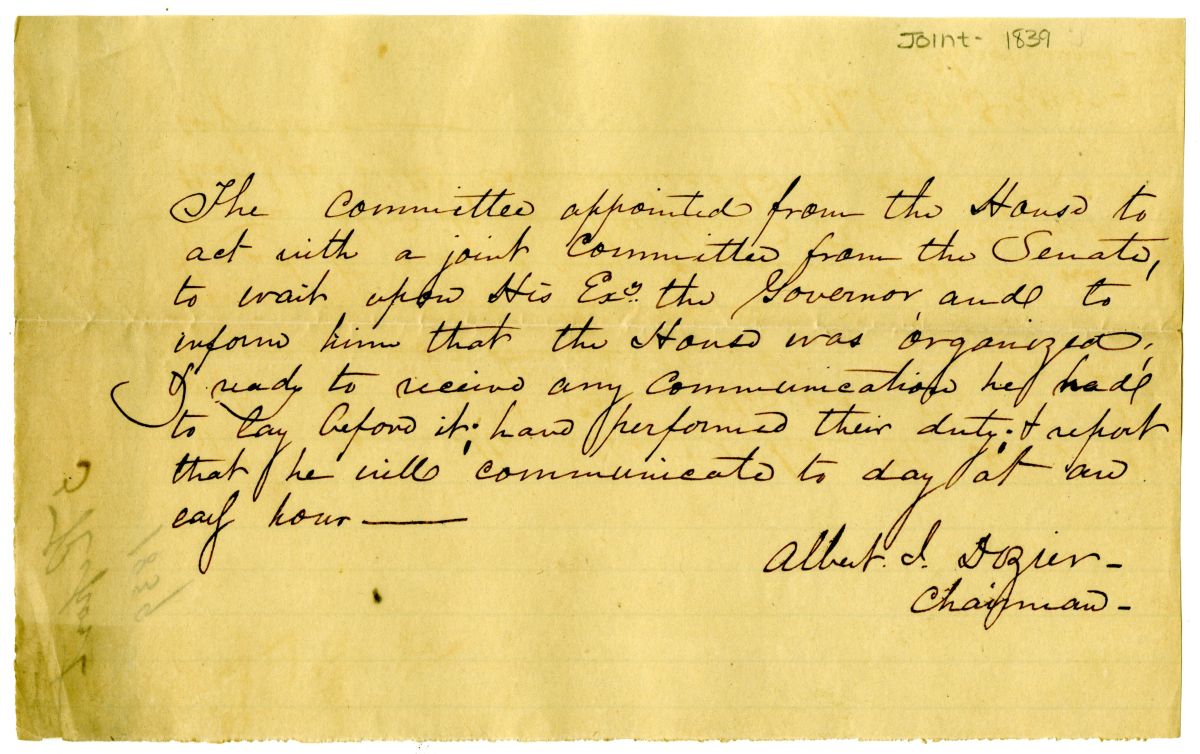 Joint - 1839
The committee appointed from the House to
act with a joint Committee from the Senate,
to wait upon His Exy. the Governor and to
inform him that the House was organized,
& ready to receive any communication he had
to lay before it; have performed their duty; & report
that he will communicate to day at an
early hour —
Albert. J. Dozier -
Chairman -